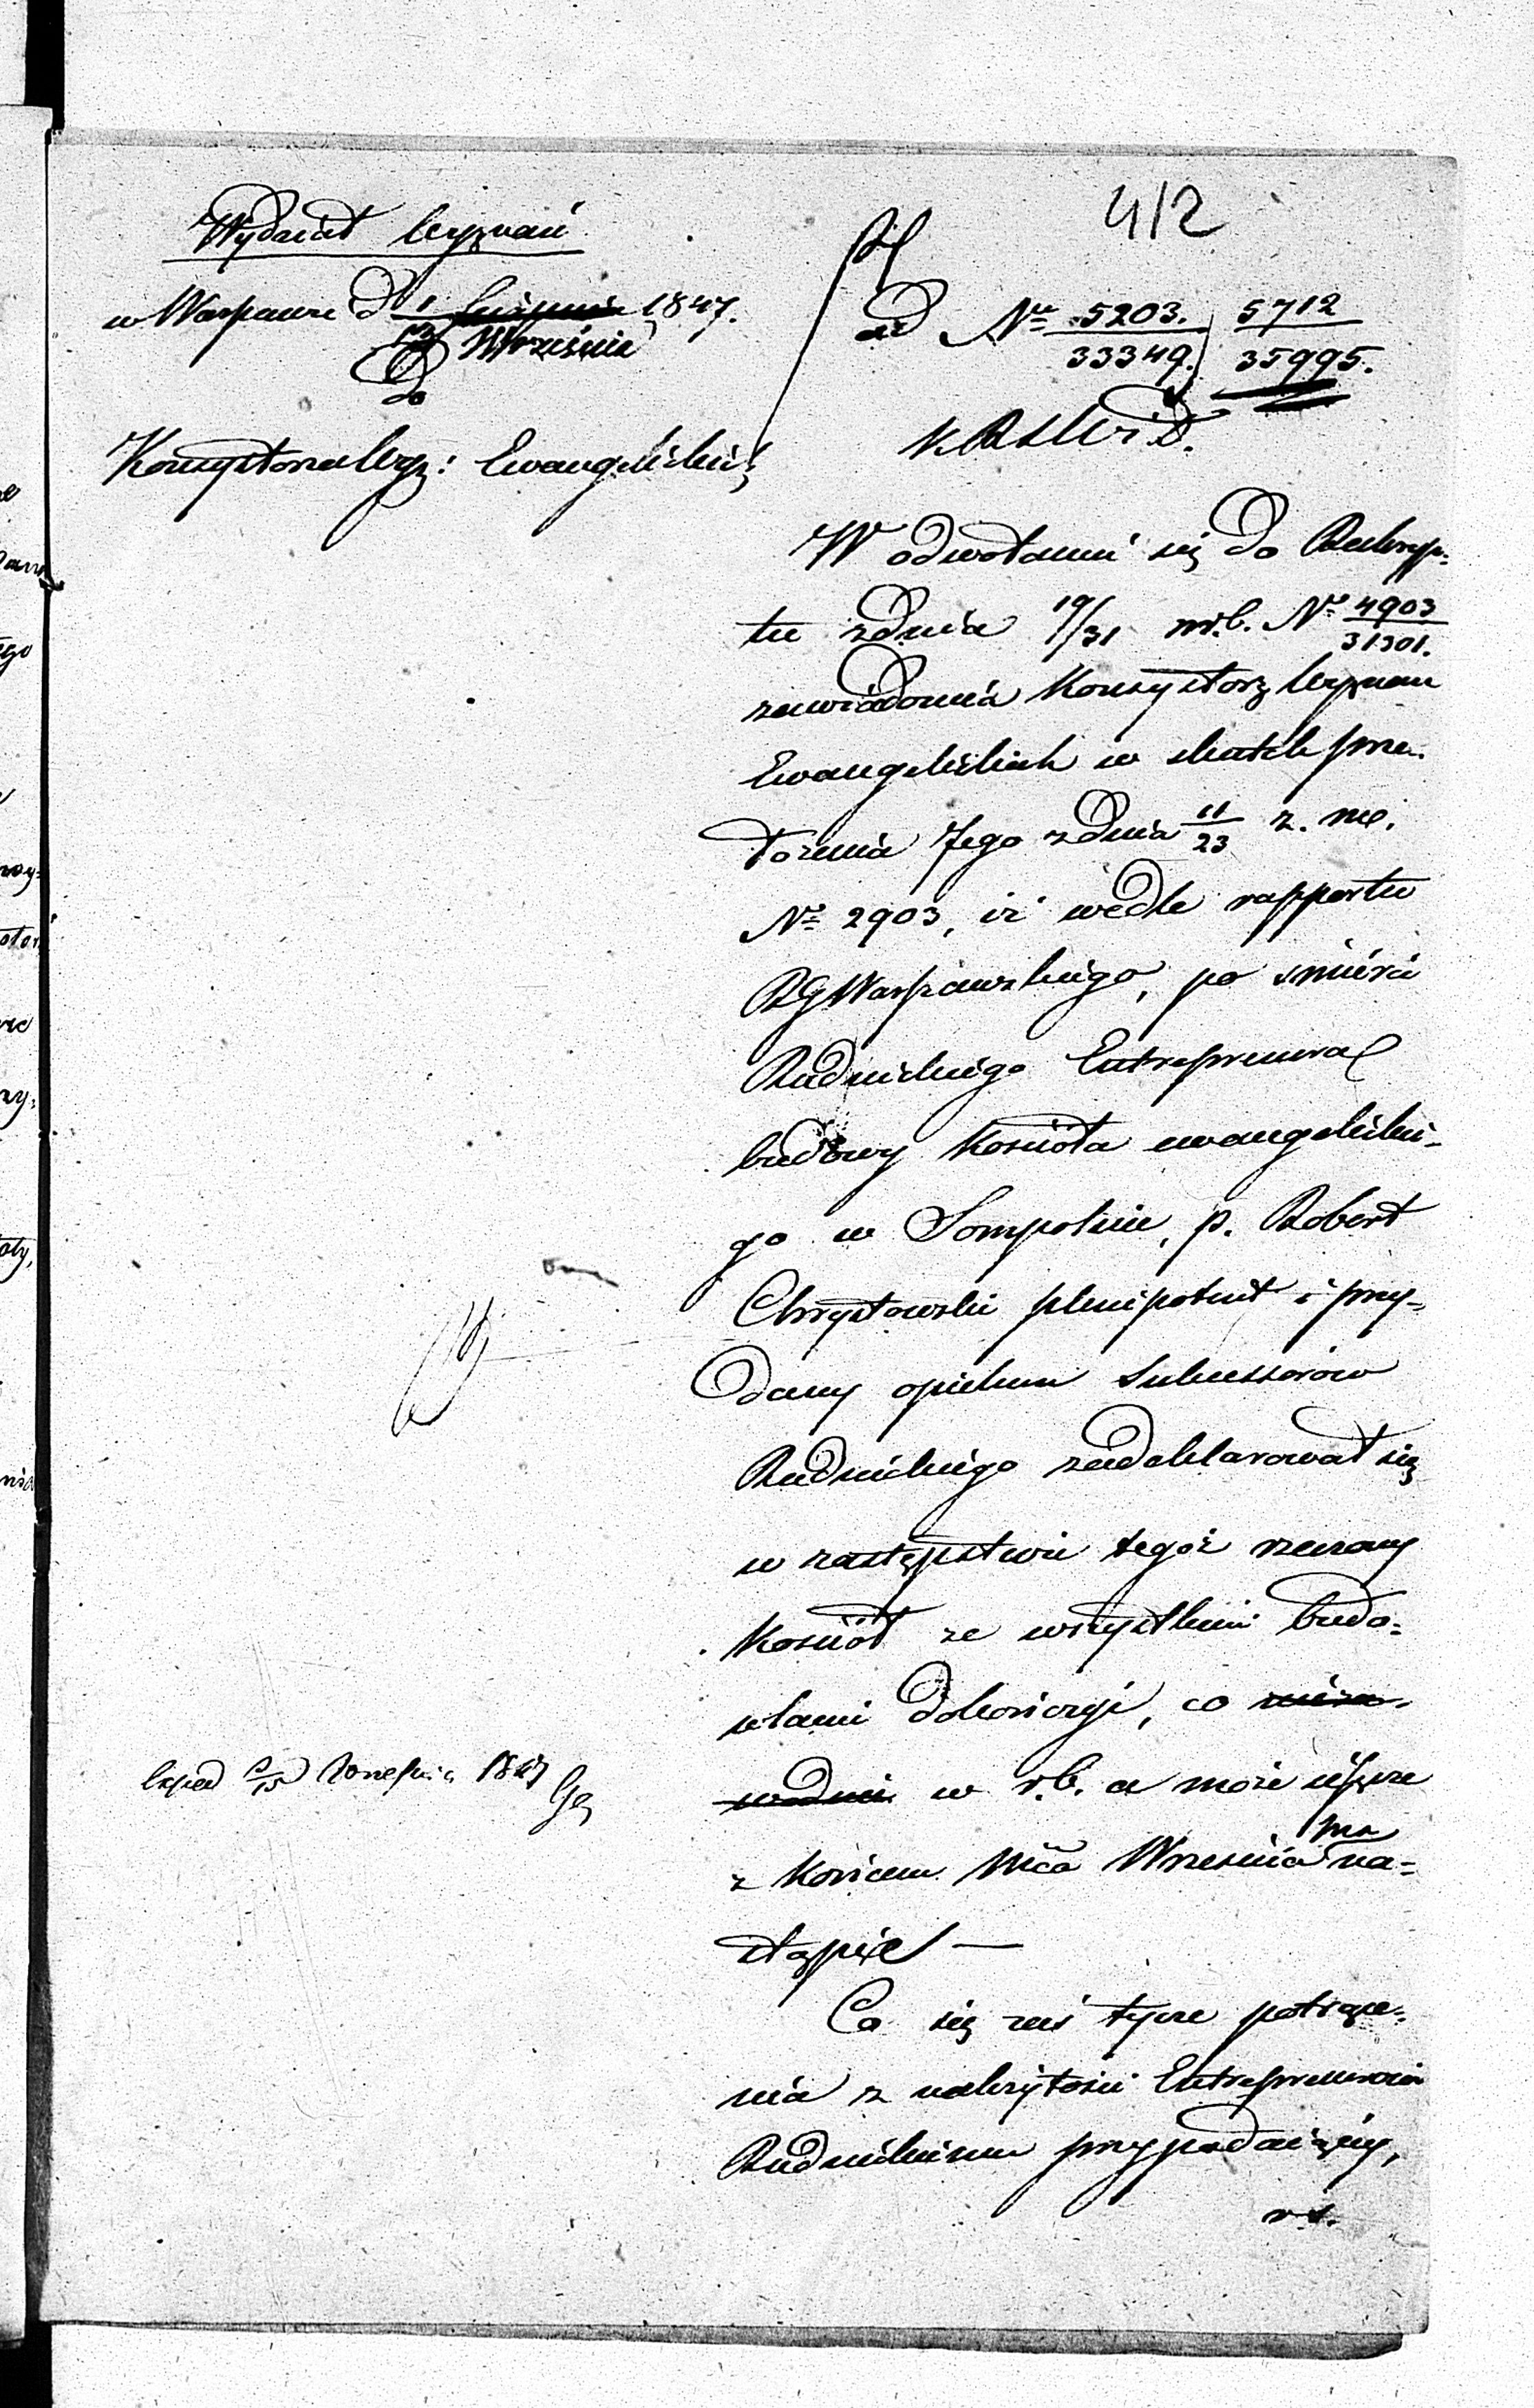 412
Wydział Wyznań
w Warszawie d 1/13 Sierpnia 1847.
Września
Do
Konsystorza Wyz: Ewangelickich
ad Nr 5203./33349. 5712/35995.
K R S W i D.
W odwołaniu się do Reskryp-
tu z dnia 19/31 m. b. No 4903/31301.
zawiadomia Konsystorz Wyznań
Ewangelickich w skutek prze-
łożenia Jego z dnia 11/23 z. m.
No 2903, iż wedle rapportu
RG Warszawskiego, po śmierci
Rudnickiego Entreprenera
budowy Kościoła ewangelickie-
go w Sompolnie, p. Robert
Chrystowski plenipotent i przy-
dany opiekun Sukcessorów
Rudnickiego zadeklarował się
w zastępstwie tegoż rzeczony
Kościół ze wszystkiemi budo-
wlami dokończyć, co nieza-
wodnie w r. b. a może jeszcze
z końcem Mca Września ma na-
stąpić —
Co się zaś tycze potrące-
nia z należytości Entreprenerowi
Rudnickiemu przypadającéj,
exped 3/15 Września 1847